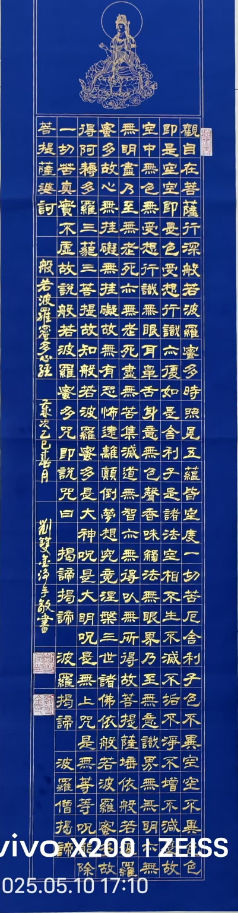 觀自在菩薩行深般若波羅蜜多時照見五蘊皆空度一切苦厄舍利子色不異空空不異色色
即是空空即是色受想行識亦復如是舍利子是諸法空相不生不滅不垢不淨不增不減是故
空中無色無受想行識無眼耳鼻舌身意無色聲香味觸法無眼界乃至無意識界無無明亦無
無明盡乃至無老死亦無老死盡無苦集滅道無智亦無得以無所得故菩提薩埵依般若波羅
蜜多故心無罣礙無罣礙故無有恐怖遠離顛倒夢想究竟涅槃三世諸佛依般若波羅蜜多故
得阿耨多羅三藐三菩提故知般若波羅蜜多是大神咒是大明咒是無上咒是無等等咒能除
一切苦真實不虛故說般若波羅蜜多咒即說咒曰 揭諦揭諦 波羅揭諦 波羅僧揭諦
菩提薩婆訶 般若波羅蜜多心經 歲次乙巳春月 敬書
vivo X200 | ZEISS
025.05.10 17:10